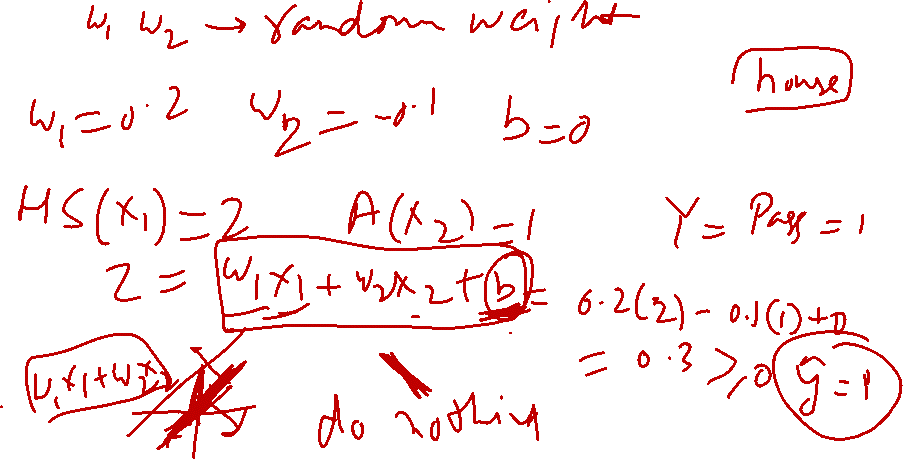 w₁ w₂ → random weight
house
w₁ = 0.2 w₂ = -0.1 b = 0
HS(x₁) = 2 A(x₂) = 1 Y = Pass = 1
Z = w₁x₁ + w₂x₂ + b = 0.2(2) - 0.1(1) + 0
= 0.3 ≥ 0 ŷ = 1
w₁x₁ + w₂x₂
do nothing